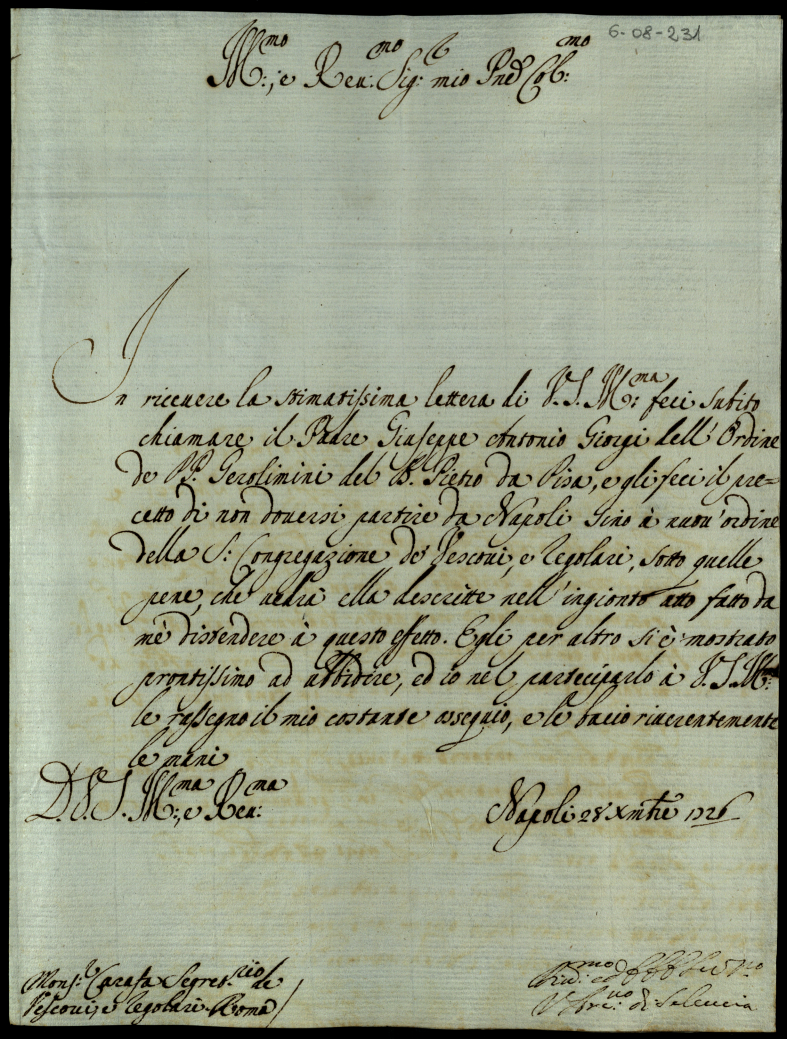 6-08-231
Ill:mo, e Reu:mo Sig:r mio Pnẽ Col:mo
In riceuere la stimatissima lettera di V.S. Ill:ma feci subito
chiamare il Padre Giuseppe Antonio Giorgi dell' Ordine
de PP. Gerolimini del B. Pietro da Pisa, e gli feci il pre=
cetto di non douersi partire da Napoli sino à nuou' ordine
della S: Congregazione de' Vescoui, e Regolari, sotto quelle
pene, che uedrà ella descritte nell' ingionto atto fatto da
mè distendere à questo effetto. Egli per altro si è mostrato
prontissimo ad ubbidire, ed io nel parteciparlo à V.S. Ill:
le rassegno il mio costante ossequio, e le bacio riuerentemente
le mani
D.V.S. Ill:ma, e Reu:ma
Napoli 28 Xmbre 1726
Mons:r Carafa Segret:rio de
Vescoui, e Regolari. Roma/
di Seleucia